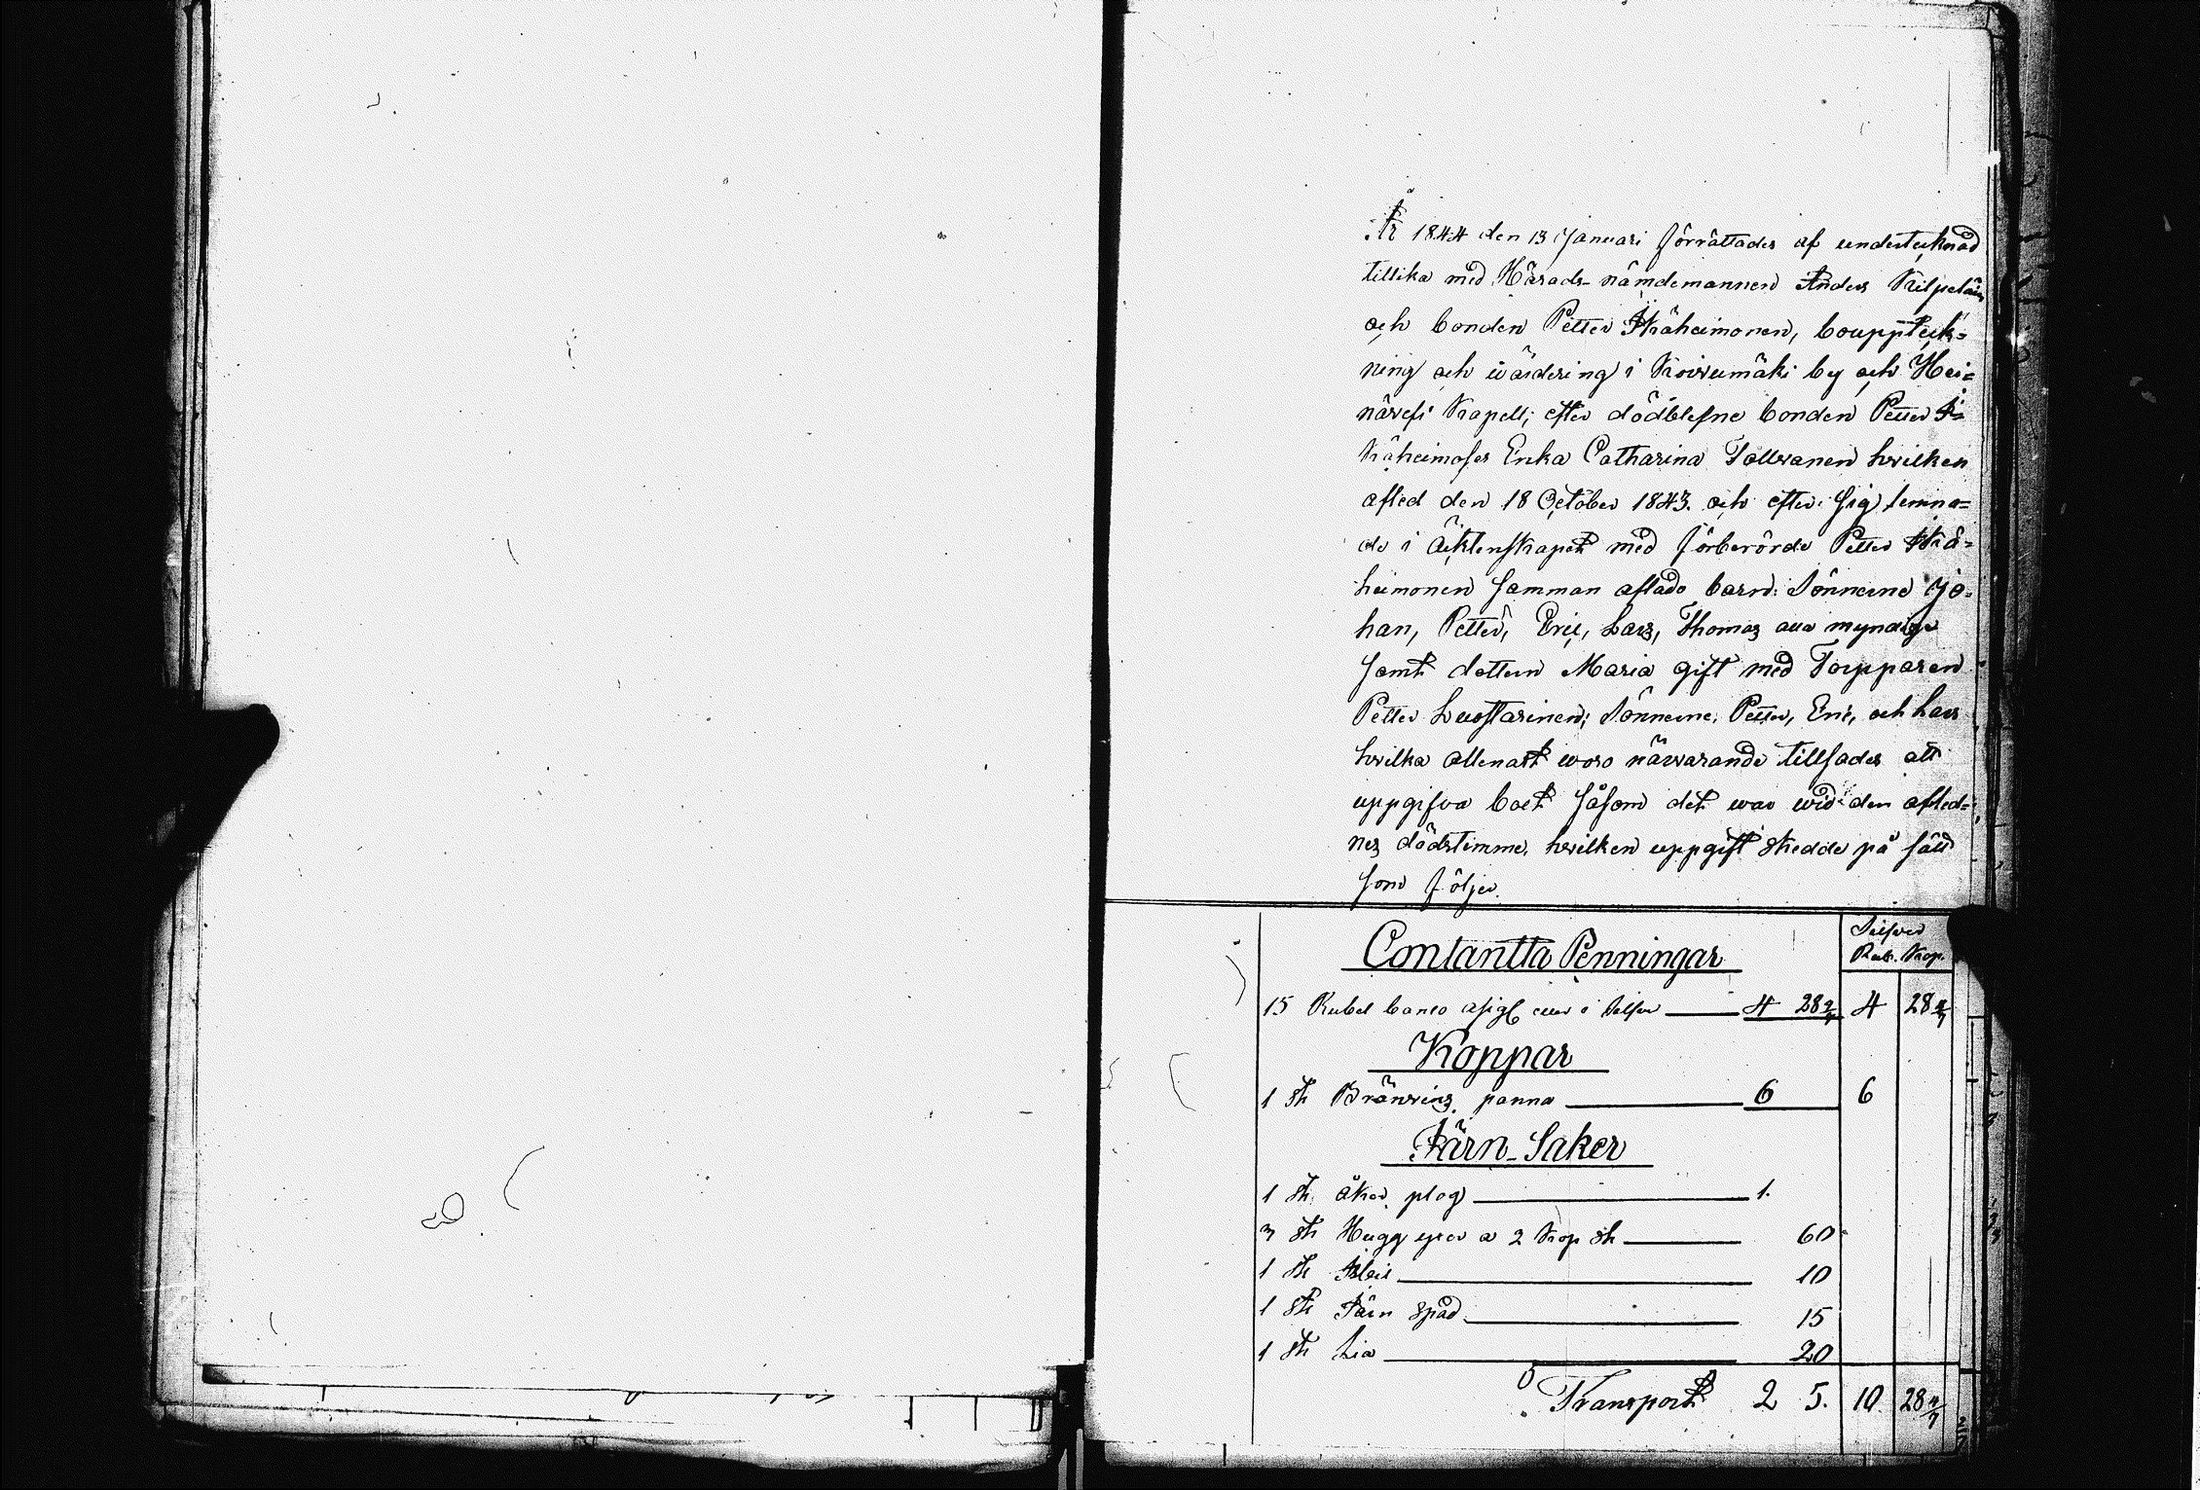 År 1844 den 13 Januari förrättades af undertecknad
tillika med Härads-nämdemannen Anders Kilpeläin
och bonden Petter Räheimonen, bouppteck=
ning och wärdering i Koivumäki by och Hei=
näwesi Kapell; efter dödblefne bonden Petter
Räheimoses Enka Catharina Tollwanen hvilken
afled den 18 October 1843. och efter sig lemna=
de i Äcktenskapet med förberörde Petter Rä=
heimonen samman aflade barn: Sönnerne Jo=
han, Petter, Eric, Lars, Thomas alla myndige
samt dottern Maria gift med Torpparen
Petter Luostarinen; Sönnerne, Petter, Eric, och Lars
hvilka allenast woro närwarande tillsades att
uppgifva boet såsom det war wid den afled=
nes dödstimme, hvilken uppgift skedde på sätt
som följer.
Contantta Penningar
Silfver
Rub. Kop.
15 Rubel banco asigl eller i Silfver 4 28 4/7 4 28 4/7
Koppar
1 st Bränvins panna 6 6
Järn-Saker
1 st åker plog 1.
3 st Hugg yxor a 2 Kop st 60
1 st 10
1 st Järn spad 15
1 st Lia 20
Transport 2 5. 10 28 4/7